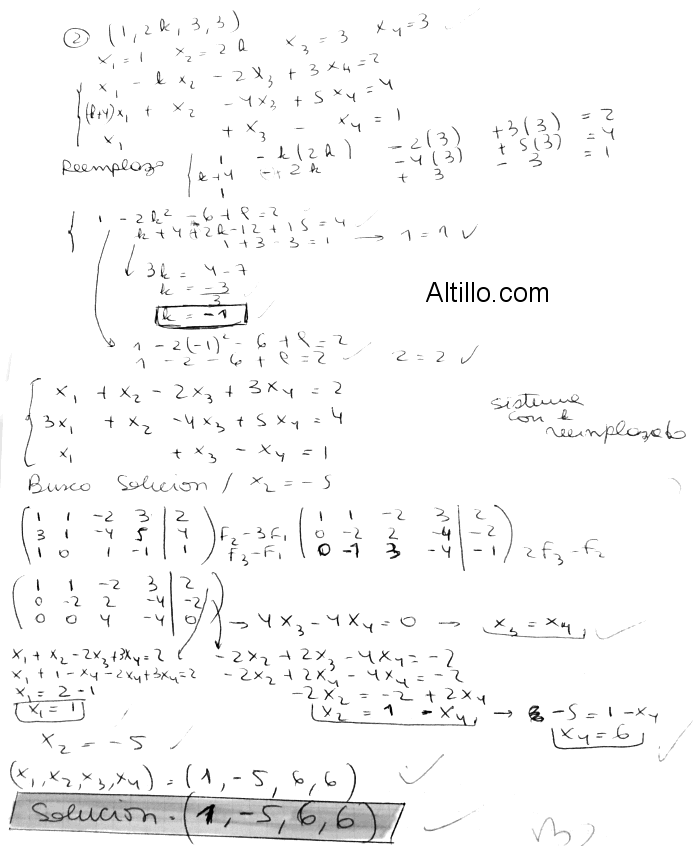 ② (1, 2k, 3, 3)
x₁ = 1   x₂ = 2k   x₃ = 3   x₄ = 3
{ x₁ - k x₂ - 2x₃ + 3x₄ = 2
(k+4)x₁ + x₂ - 4x₃ + 5x₄ = 4
x₁ + x₃ - x₄ = 1
Reemplazo { 1 - k(2k) - 2(3) + 3(3) = 2
k+4 + 2k - 4(3) + 5(3) = 4
1 + 3 - 3 = 1
{ 1 - 2k² - 6 + 9 = 2
k + 4 + 2k - 12 + 15 = 4
1 + 3 - 3 = 1 → 1 = 1 ✓
3k = 4 - 7
k = -3/3
k = -1
Altillo.com
1 - 2(-1)² - 6 + 9 = 2
1 - 2 - 6 + 9 = 2 ✓ 2 = 2 ✓
{ x₁ + x₂ - 2x₃ + 3x₄ = 2
3x₁ + x₂ - 4x₃ + 5x₄ = 4
x₁ + x₃ - x₄ = 1
sistema
con k
reemplazado
Busco Solucion / x₂ = -5
( 1 1 -2 3 | 2 ) ( 1 1 -2 3 | 2 )
( 3 1 -4 5 | 4 ) F₂ - 3F₁ ( 0 -2 2 -4 | -2 )
( 1 0 1 -1 | 1 ) F₃ - F₁ ( 0 -1 3 -4 | -1 ) 2F₃ - F₂
( 1 1 -2 3 | 2 )
( 0 -2 2 -4 | -2 )
( 0 0 4 -4 | 0 ) → 4x₃ - 4x₄ = 0 → x₃ = x₄ ✓
x₁ + x₂ - 2x₃ + 3x₄ = 2 ✓ -2x₂ + 2x₃ - 4x₄ = -2
x₁ + 1 - x₄ - 2x₄ + 3x₄ = 2 -2x₂ + 2x₄ - 4x₄ = -2
x₁ = 2 - 1 -2x₂ = -2 + 2x₄
x₁ = 1 x₂ = 1 - x₄ → -5 = 1 - x₄
x₄ = 6 ✓
x₂ = -5 ✓
(x₁, x₂, x₃, x₄) = (1, -5, 6, 6) ✓
Solucion. (1, -5, 6, 6) ✓